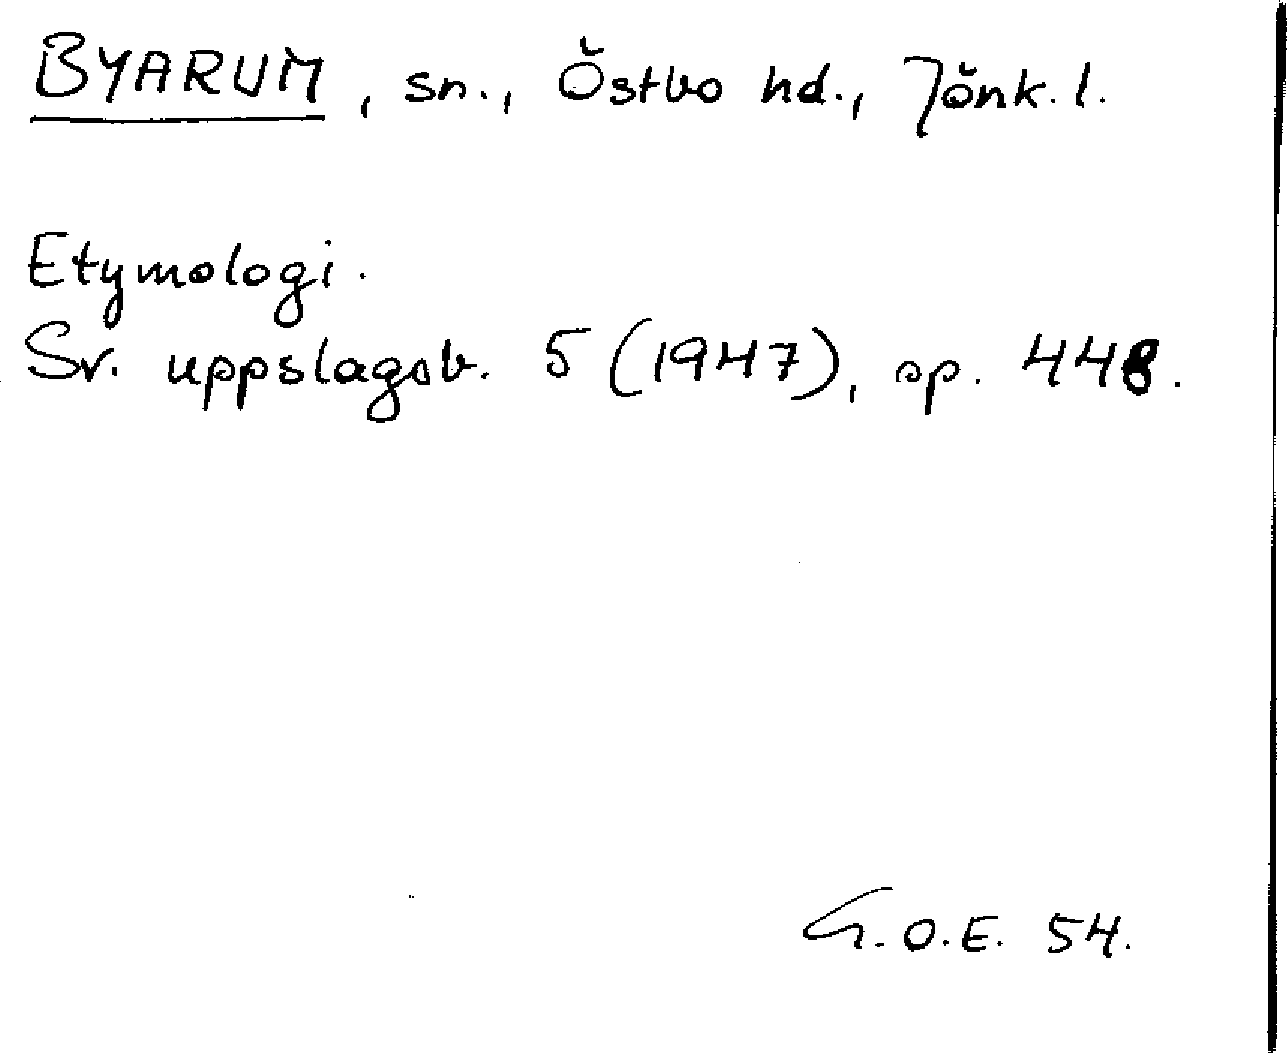 BYARUM, sn., Östbo hd., Jönk. l.
Etymologi.
Sv. uppslagsb. 5 (1947), sp. 448.
G.O.E. 54.